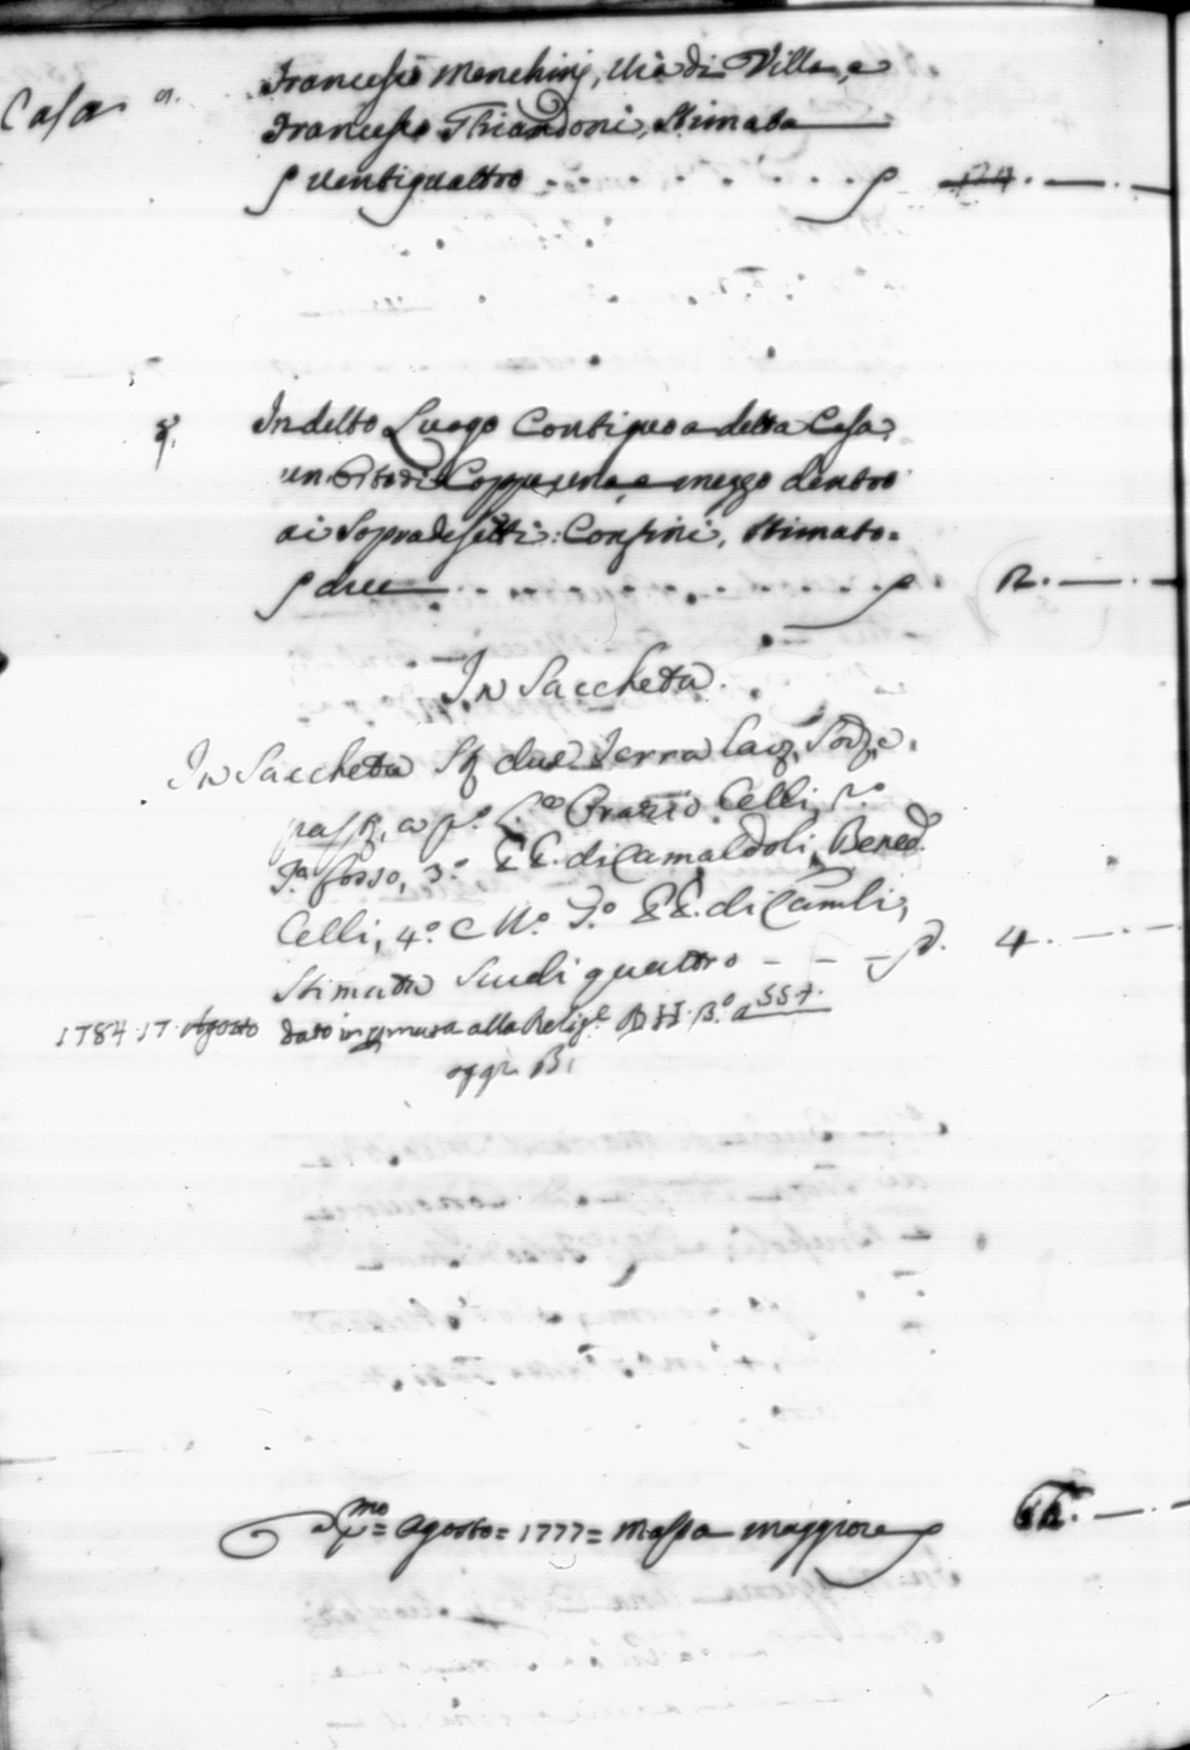 Casa a. Francesco Menchini, Via di Villa, e
Francesco Ghiandoni, Stimata
ventiquattro 24.
In detto Luogo Contiguo a detta Casa
un Orto di Coppe una e mezzo dentro
ai Sopradescritti Confini, Stimato=
due 2.
In Saccheta.
In Saccheta St. due Terra Lav. Sod. e
past. a p.º Orazio Celli, 2.º
Fosso, 3.º EE. di Camaldoli, Bened.
Celli, 4.º e Ult.º EE. di Camli,
Stimata Scudi quattro 4.
1784. 17. Agosto dato in permuta alla Relig.e B.º a 557.
Agosto = 1777 = Massa maggiore